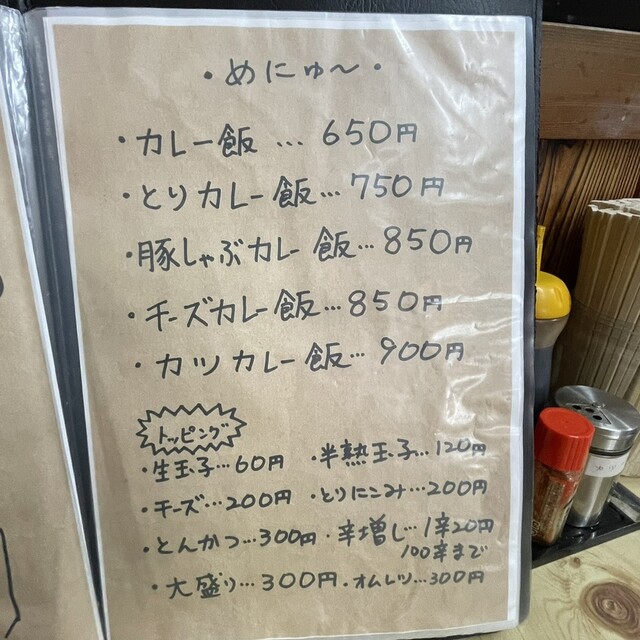 ・めにゅ〜・
・カレー飯 … 650円
・とりカレー飯…750円
・豚しゃぶカレー飯…850円
・チーズカレー飯…850円
・カツカレー飯…900円
トッピング
・生玉子…60円 ・半熟玉子…120円
・チーズ…200円 ・とりにこみ…200円
・とんかつ…300円 ・辛増し…1辛20円
100辛まで
・大盛り…300円 ・オムレツ…300円